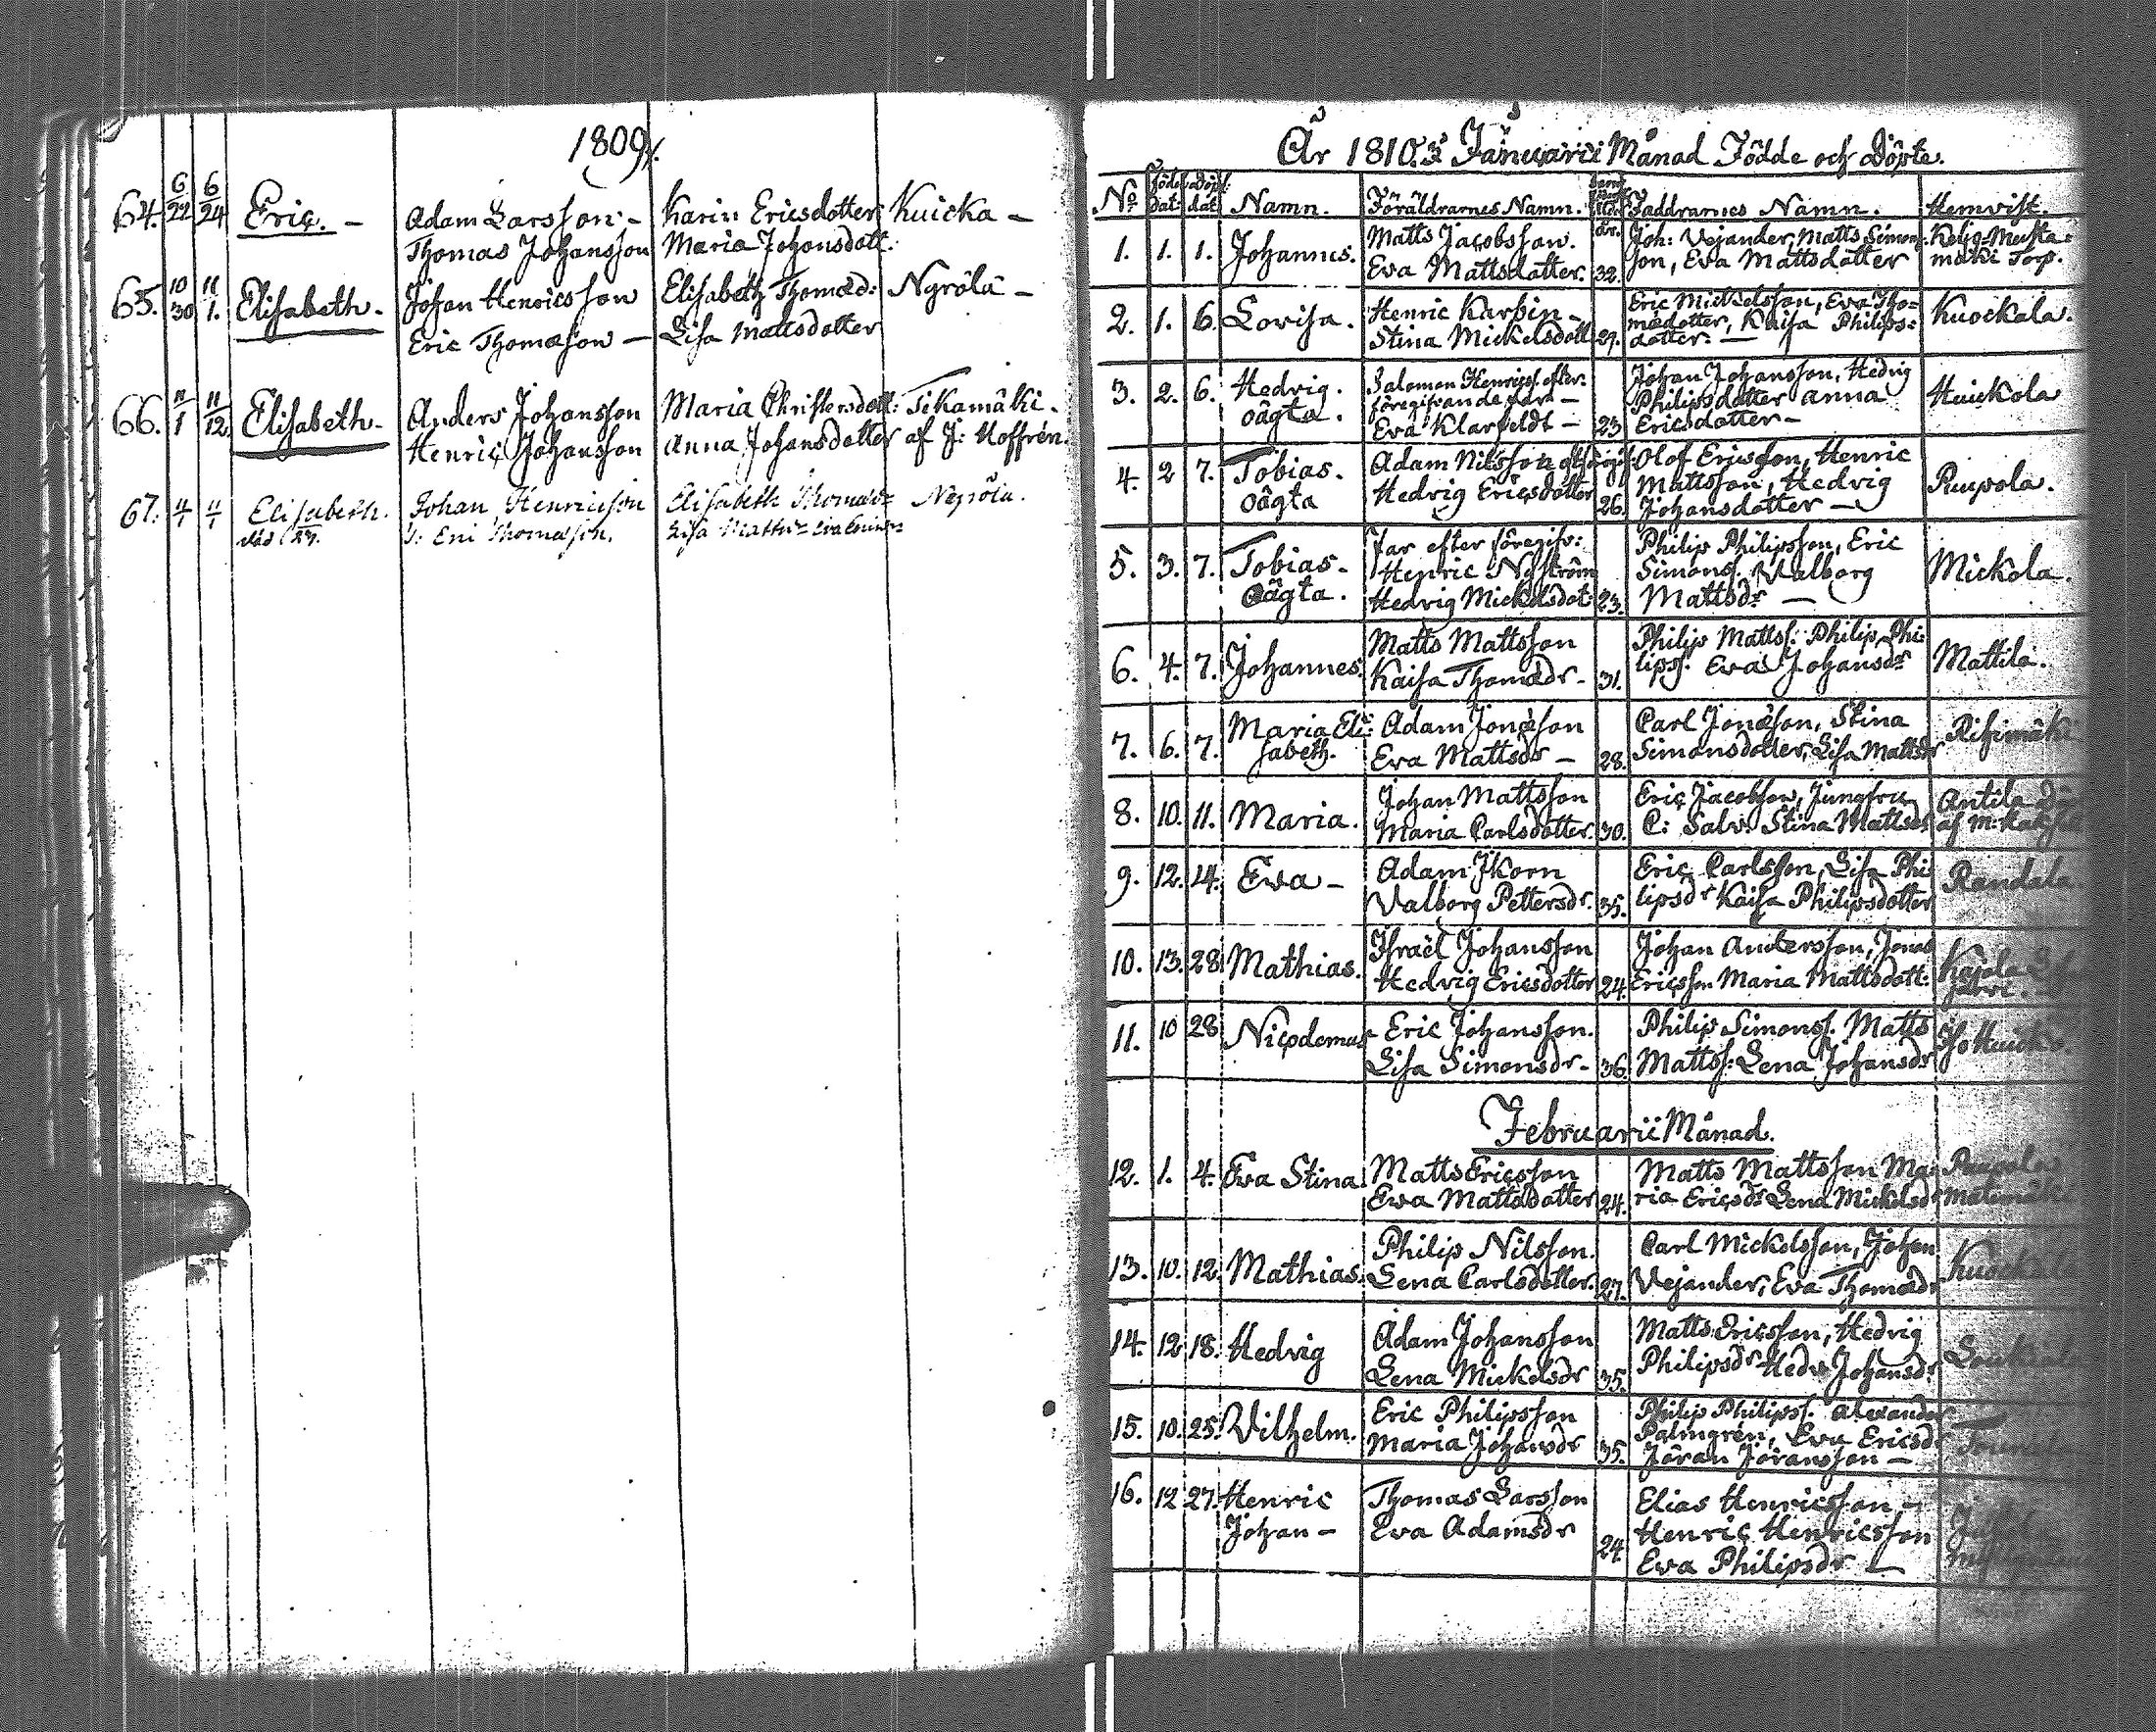 1809.
64. 6/22 6/24 Eric. - Adam Larsson - Karin Ericsdotter Kuicka -
Thomas Johansson Maria Johansdott:
65. 10/30 11/1. Elisabeth. Johan Henricsson Elisabeth Thomæd: Nyrölä -
Eric Thomæson - Lisa Mattsdotter
66. 11/1 11/12 Elisabeth - Anders Johansson Maria Christersdott: Tikamäki.
Henric Johansson Anna Johansdotter af J: Hoffrén.
67. 11/1 11/1 Elisabeth. Johan Henricsson Elisabeth Thomæd= Negrölä.
Thomæson. Lisa Matts=
År 1810. Januarii Månad Födde och Döpte.
No Föde dat: Döpt: dat Namn. Föräldrarnes Namn. Faddrarnes Namn. Hemvist.
1. 1. 1. Johannes. Matts Jacobsson. Joh: Vejander, Matts Simons=
Eva Mattsdotter. 32. son, Eva Mattsdotter mäki Torp.
2. 1. 6. Lovisa. Henric Karpin - Eric Mickelsson, Eva Tho=
Stina Mickelsdott 29. mædotter, Kaisa Philips=
dotter. - Kuockala.
3. 2. 6. Hedvig. Salomon Henricss. efter: Johan Johansson, Hedvig
oägta. föregifvande far - Philipsdotter Anna Huickola
Eva Klarfeldt - 23 Ericsdotter -
4. 2 7. Tobias. Adam Nilsson Olof Ericsson, Henric
oägta Hedvig Ericsdotter 26. Mattsson, Hedvig Puupola.
Johansdotter -
5. 3. 7. Tobias - Far efter föregifv: Philip Philipsson, Eric
oägta. Henric Nyström Simons. Valborg Mickola.
Hedvig Mickelsdot: 23. Mattsdr -
6. 4. 7. Johannes. Matts Mattsson Philip Mattss: Philip Phi=
Kaisa Thomædr - 31. lipss. Eva Johansdr Mattila.
7. 6. 7. Maria Eli= Adam Jonæson Carl Jonæson, Stina
sabeth. Eva Mattsdr - 28. Simonsdotter, Lisa Mattsdr Risimäki
8. 10. 11. Maria. Johan Mattsson Eric Jacobsson, Jungfru Antila
Maria Carlsdotter. 30. C: Salv: Stina Mattsdr
9. 12. 14. Eva - Adam Ikorn Eric Carlsson, Lisa Phi
Valborg Pettersdr. 35. lipsdr Kaisa Philipsdotter Randala
10. 13. 28 Mathias. Israël Johansson Johan Andersson, Jonas
Hedvig Ericsdotter 24. Ericsson Maria Mattsdott:
11. 10 28 Nicodemus Eric Johansson. Philip Simonss. Matts
Lisa Simonsdr - 36. Mattss: Lena Johansdr
Februarii Månad.
12. 1. 4. Eva Stina. Matts Ericsson Matts Mattsson Ma= Puupola
Eva Mattsdotter 24. ria Ericsdr Lena Mickelsdr
13. 10. 12. Mathias. Philip Nilsson. Carl Mickelsson, Johan
Lena Carlsdotter. 27. Vejander, Eva Thomædr Kuockala
14. 12 18. Hedvig Adam Johansson Matts Ericsson, Hedvig
Lena Mickelsdr 35. Philipsdr Hedv: Johansdr
15. 10. 25. Vilhelm. Eric Philipsson Philip Philipss. Alexander
Maria Johansdr 35. Palmgrén, Eva Ericsdr
Jöran Jöransson -
16. 12 27. Henric Thomas Larsson Elias Henricsson -
Johan - Eva Adamsdr 24. Henric Henricsson
Eva Philipsdr -